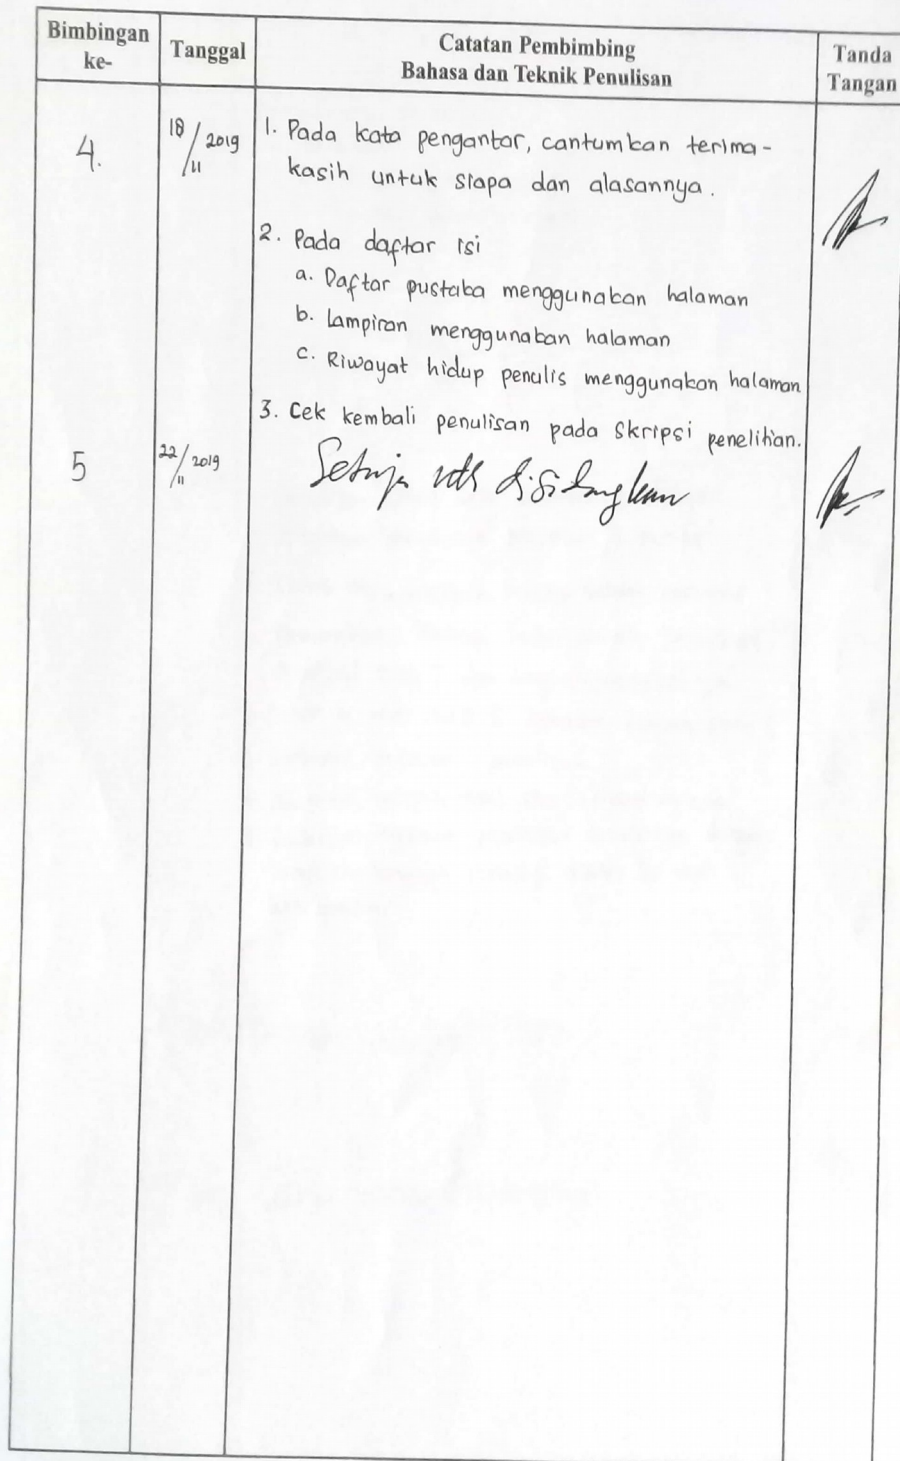 Bimbingan ke-
Tanggal
Catatan Pembimbing
Bahasa dan Teknik Penulisan
Tanda Tangan
4.
18/11 2019
1. Pada kata pengantar, cantumkan terima-
kasih untuk siapa dan alasannya.
2. Pada daftar isi
a. Daftar pustaka menggunakan halaman
b. Lampiran menggunakan halaman
c. Riwayat hidup penulis menggunakan halaman
3. Cek kembali penulisan pada skripsi penelitian.
5
22/11 2019
Setuju utk disidangkan